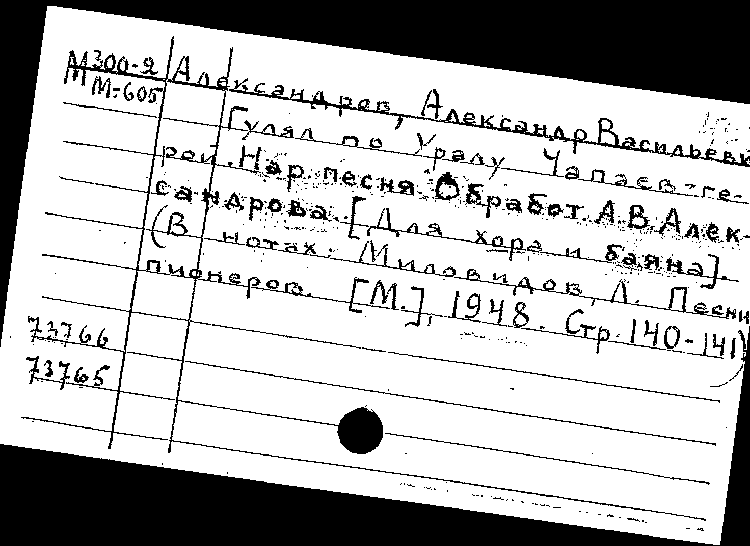 М300-2 Александров, Александр Васильев
М-605
Гулял по Уралу Чапаев-ге-
рой. Нар. песня. Обработ. А.В. Алек-
сандрова. [Для хора и баяна].
(В нотах: Миловидов, Л. Песни
пионеров. [М.], 1948. Стр. 140-141)
73766
73765